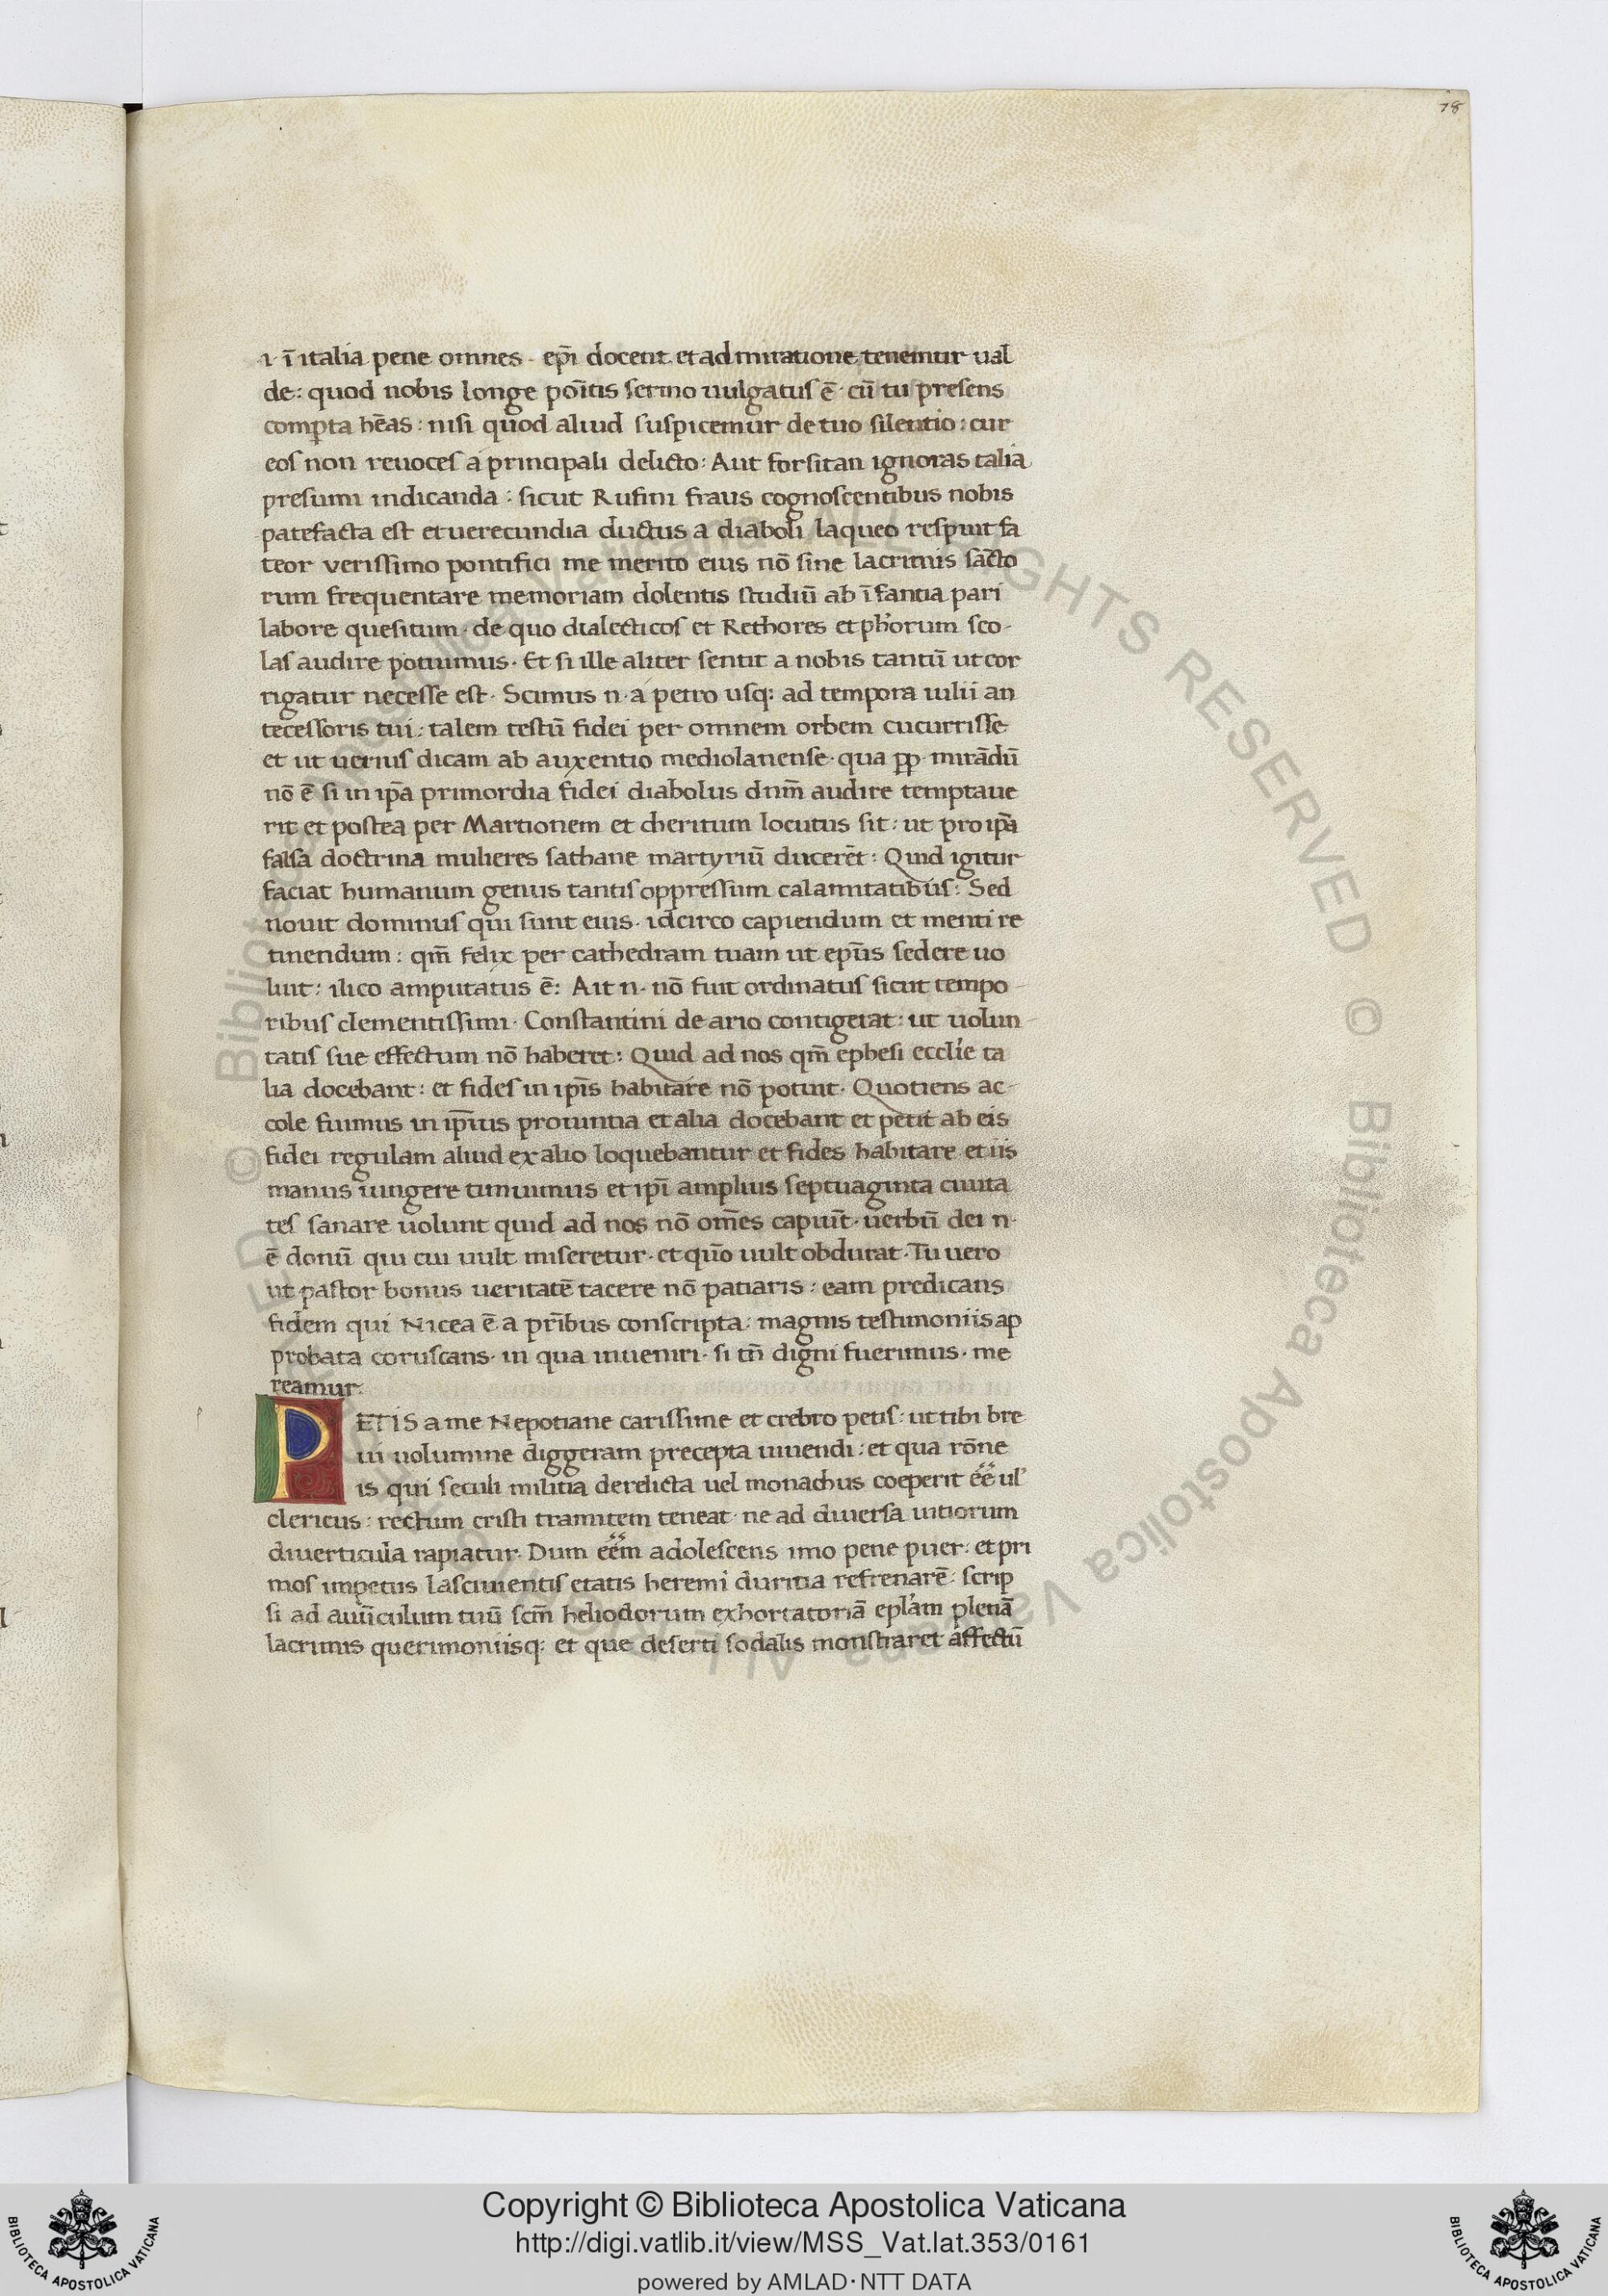 78
i· ī italia pene omnes· ep̄i docent et admiratione tenemur ual
de: quod nobis longe poītis sermo uulgatus ē· cū tu presens
comp̄ta hēas: nisi quod aliud suspicemur de tuo silentio: cur
eos non reuoces a principali delicto: Aut forsitan ignoras talia
presumi indicanda: sicut Rufini fraus cognoscentibus nobis
patefacta est et uerecundia ductus a diaboli laqueo respuit fa
teor verissimo pontifici me merito eius nō sine lacrimis sāctо
rum frequentare memoriam dolentis studiū ab ī fantia pari
labore quesitum· de quo dialecticos et Rethores et ph'orum sco-
las audire potuimus· Et si ille aliter sentit a nobis tantū ut cor
rigatur necesse est· Scimus n· a petro usq; ad tempora iulii an
tecessoris tui: talem testū fidei per omnem orbem cucurrisse
et ut uerius dicam ab auxentio mediolanense· qua pp̄· mirādū
nō ē si in ip̄a primordia fidei diabolus dnm̄ audire temptaue
rit et postea per Martionem et cheritum locutus sit: ut pro ip̄a
falsa doctrina mulieres sathane martyriū ducerēt: Quid igitur
faciat humanum genus tantis oppressum calamitatibus: Sed
nouit dominus qui sunt eius· idcirco capiendum et menti re
tinendum: qm̄ felix per cathedram tuam ut epūs sedere uo
luit: ilico amputatus ē: Ait n· nō fuit ordinatus sicut tempo-
ribus clementissimi· Constantini de ario contigerat: ut uolun-
tatis sue effectum nō haberet: Quid ad nos qm̄ ephesi eccl'ie ta
lia docebant: et fides in ip̄is habitare nō potuit· Quotiens ac-
cole fuimus in ip̄ius prouintia et alia docebant et petit ab eis
fidei regulam aliud ex alio loquebantur et fides habitare et iis
manus iungere timuimus et ip̄i amplius septuaginta ciuita
tes sanare uolunt quid ad nos nō om̄es capiūt· uerbū dei n·
ē donū qui cui uult miseretur· et quō uult obdurat· Tu uero
ut pastor bonus ueritatē tacere nō patiaris: eam predicans
fidem qui Nicea ē a pr̄ibus conscripta: magnis testimoniis ap
probata coruscans· in qua inueniri· si tn̄ digni fuerimus· me
reamur·
PETIS a me Nepotiane carissime et crebro petis: ut tibi bre
ui uolumine diggeram precepta uiuendi: et qua rōne
is qui seculi militia derelicta uel monachus coeperit ēē ul'
clericus: rectum cristi tramitem teneat· ne ad diuersa uitiorum
diuerticula rapiatur· Dum eēm adolescens imo pene puer: et pri
mos impetus lasciuientis etatis heremi duritia refrenarē: scrip
si ad auūculum tuū scm̄ heliodorum exhortatoriā epl'am plenā
lacrimis querimoniisq; et que deserti sodalis monstraret affectū
© Biblioteca Apostolica Vaticana ALL RIGHTS RESERVED
Copyright © Biblioteca Apostolica Vaticana
http://digi.vatlib.it/view/MSS_Vat.lat.353/0161
powered by AMLAD·NTT DATA
BIBLIOTECA APOSTOLICA VATICANA
BIBLIOTECA APOSTOLICA VATICANA